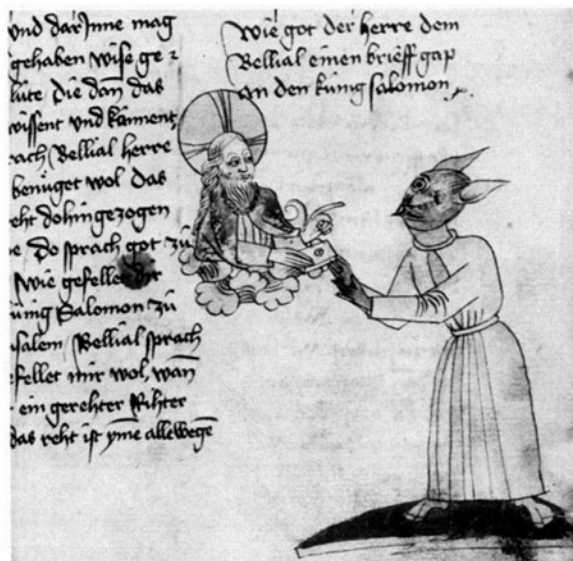 vnd dar Inne mag
gehaben wise ge
lüte die dan das
wissent vnd kännent
rach Bellial herre
benüget wol das
reht dohingezogen
e Do sprach got zü
wie gefellet dir
künig Salomon zü
usalem Bellial sprach
efellet mir wol, wan̄
ein gerehter Rihter
das reht ist yme allewegē
wie got der herre dem
Bellial einen brieff gap
an den künig salomon